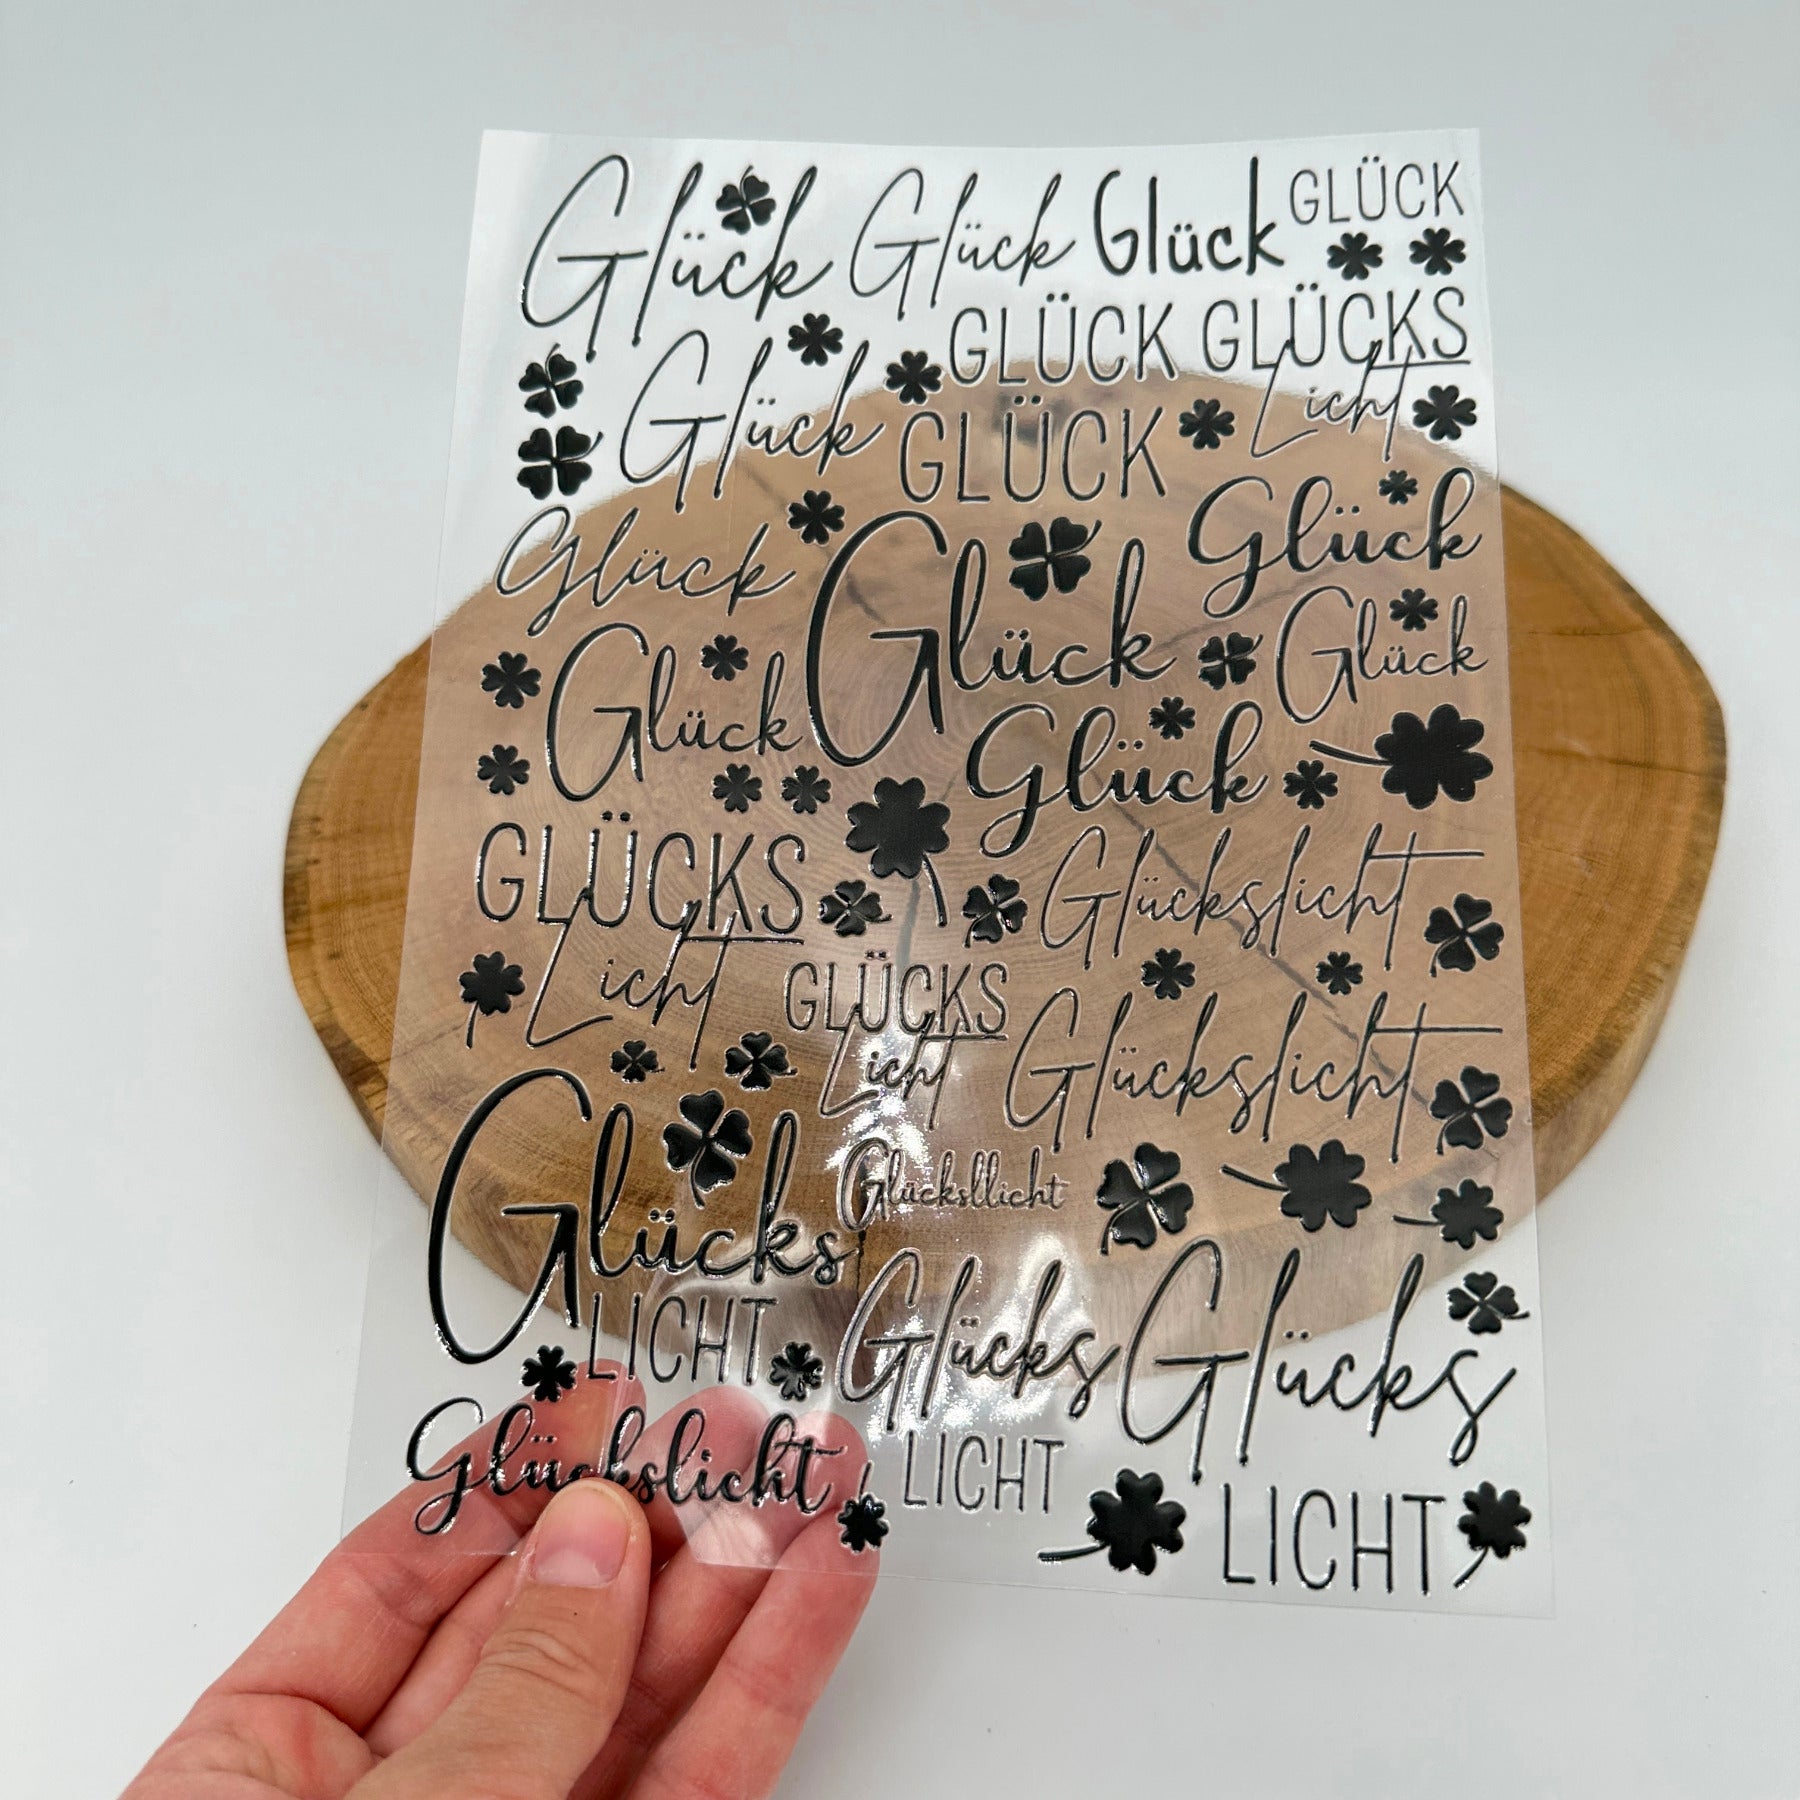 Glück Glück Glück GLÜCK
Glück GLÜCK GLÜCKS
Licht
GLÜCK
Glück Glück Glück
Glück Glück
Glück
GLÜCKS Glückslicht
Licht GLÜCKS
Licht Glückslicht
Glücks Glücksllicht
LICHT Glücks Glücks
Glückslicht LICHT LICHT